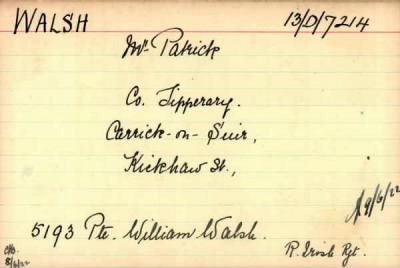 WALSH 13/D/7214
Mr Patrick
Co. Tipperary.
Carrick-on-Suir,
Kickham St.,
A 9/6/22
5193 Pte. William Walsh.
R. Irish Rgt.
8/6/22